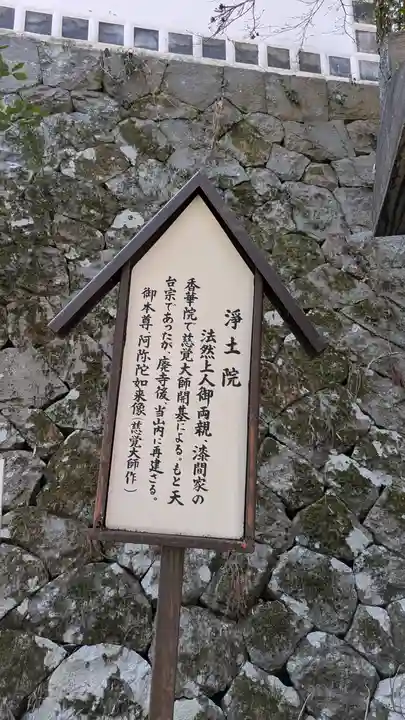 淨土院
法然上人御両親、漆間家の
香華院で慈覚大師開基による。もと天
台宗であったが廃寺後、当山内に再建さる。
御本尊 阿弥陀如来像(慈覚大師作)